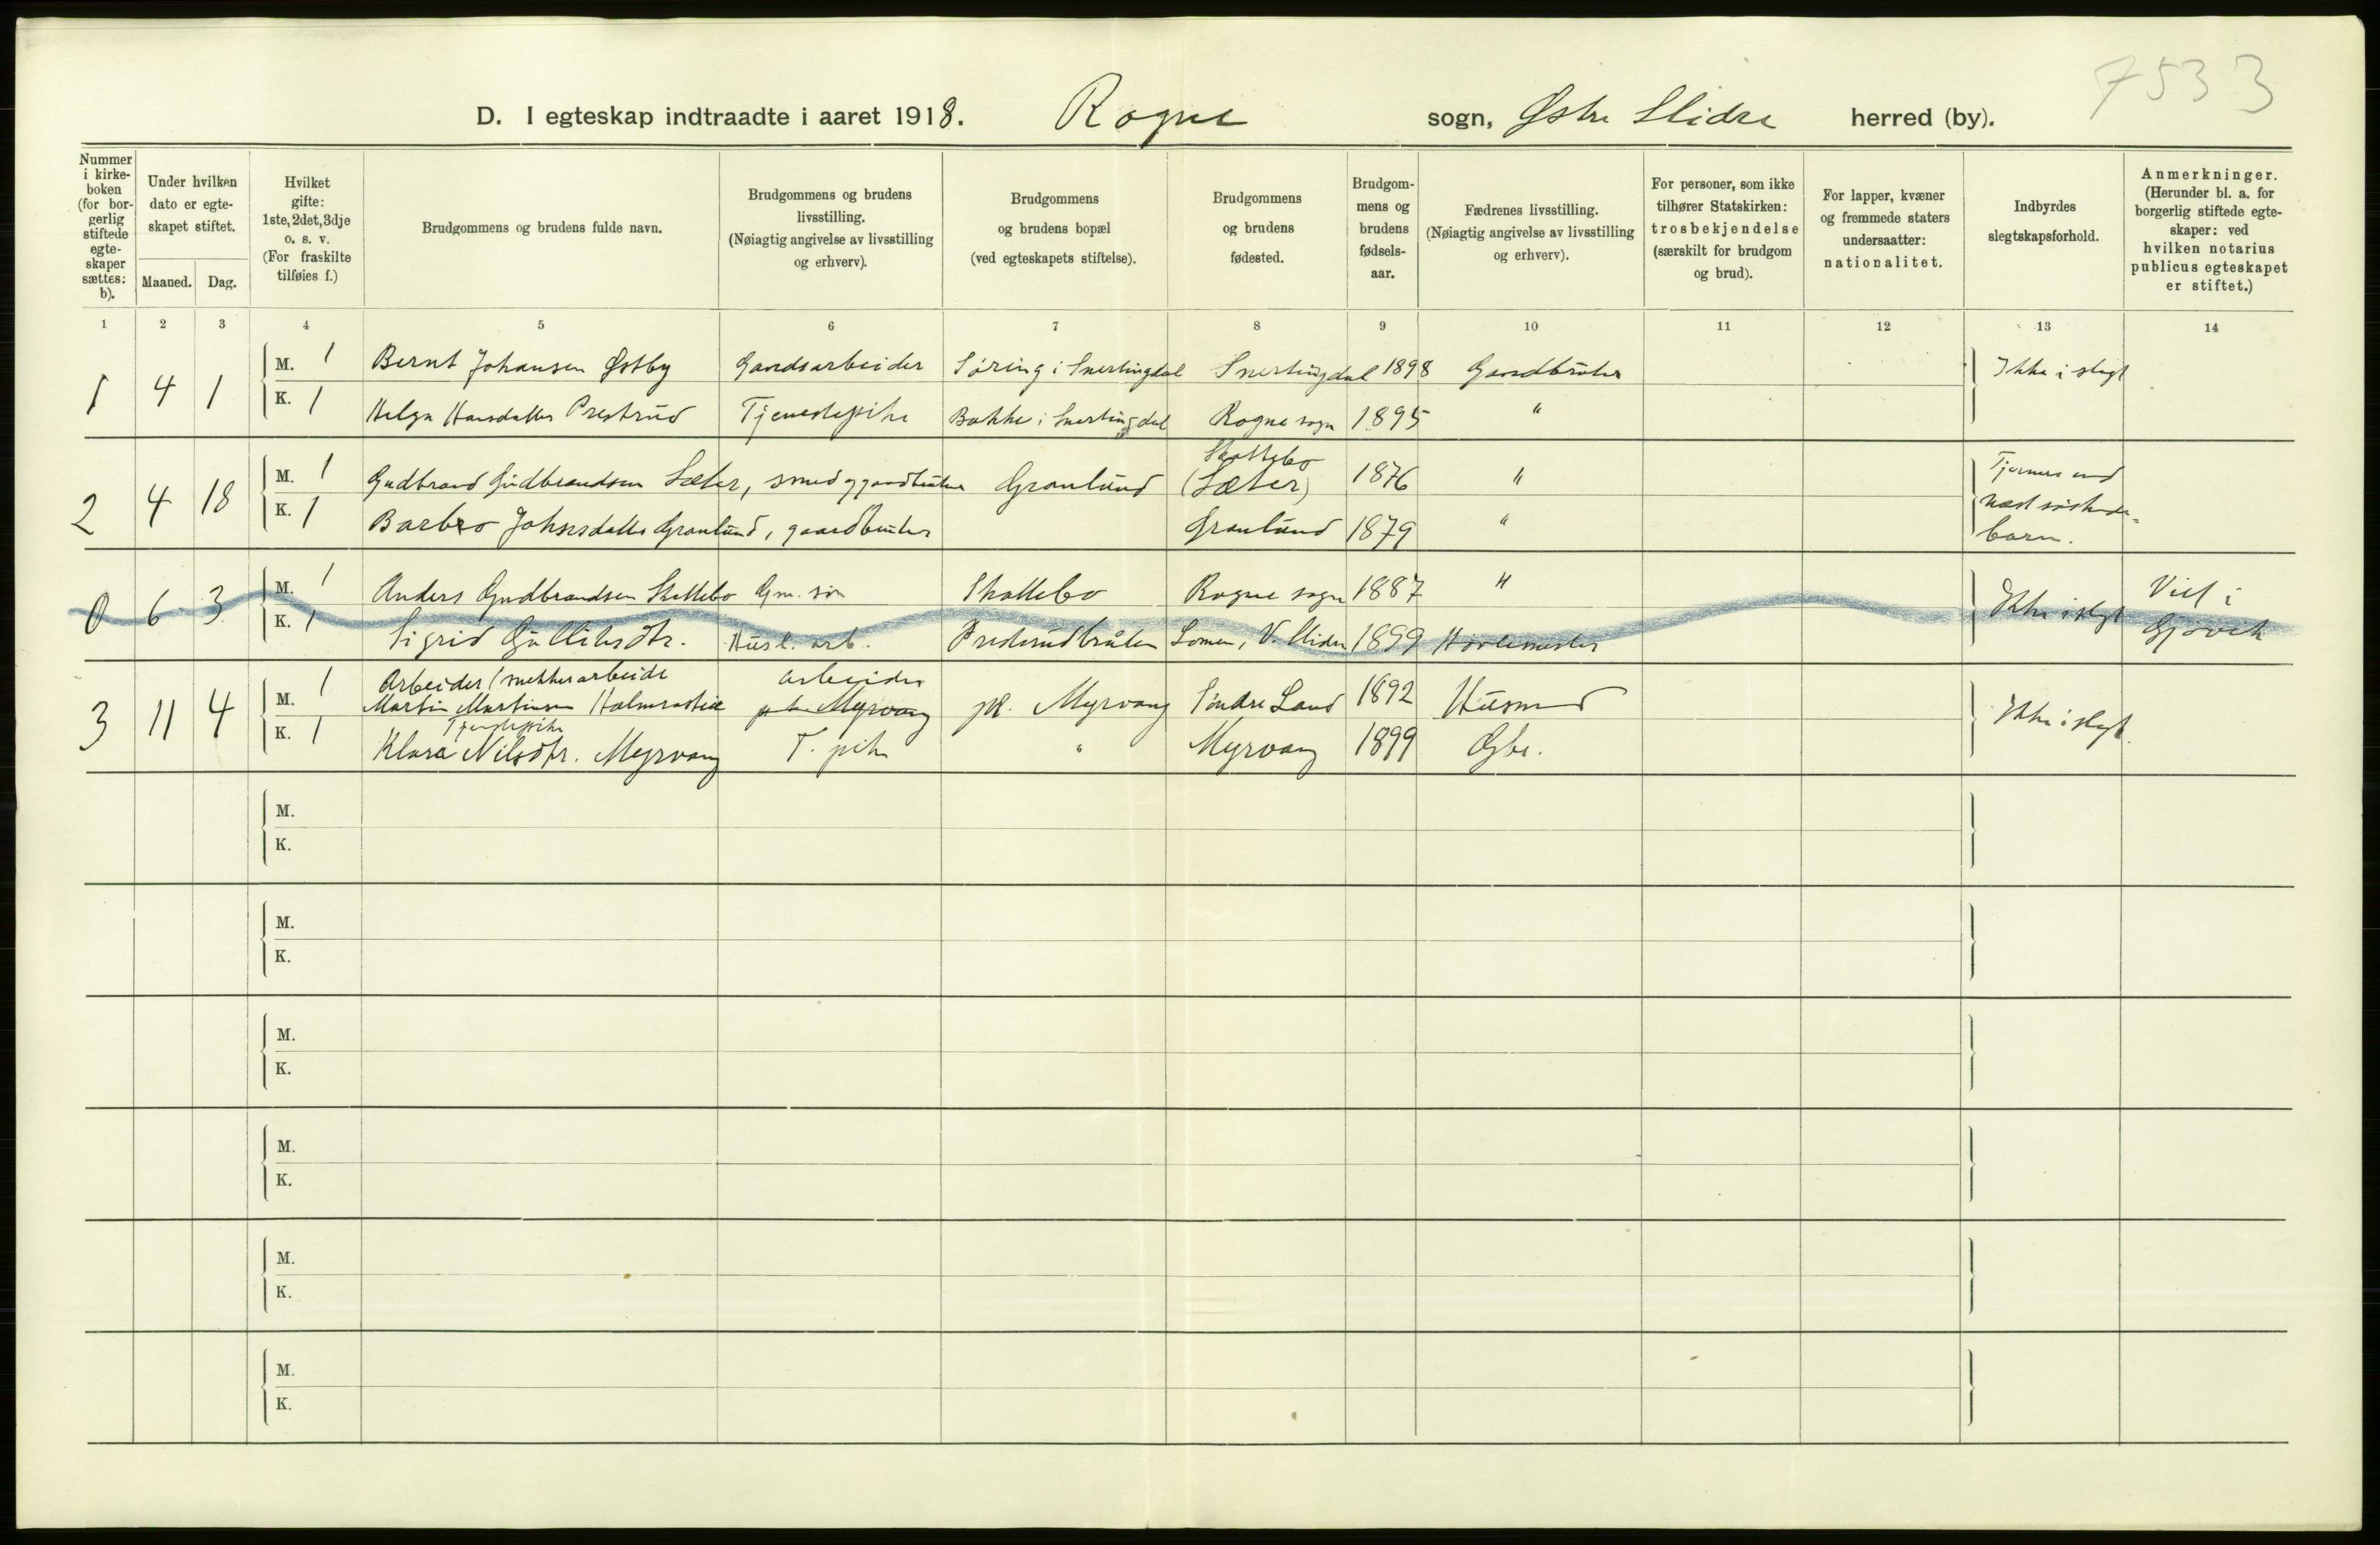 7533
D. I egteskap indtraadte i aaret 1918. Rogne sogn, Østre Slidre herred (by).
Nummer i kirkeboken (for borgerlig stiftede egteskaper sættes: b).
Under hvilken dato er egteskapet stiftet.
Maaned. Dag.
Hvilket gifte: 1ste, 2det, 3dje o. s. v. (For fraskilte tilføies f.)
Brudgommens og brudens fulde navn.
Brudgommens og brudens livsstilling. (Nøiagtig angivelse av livsstilling og erhverv).
Brudgommens og brudens bopæl (ved egteskapets stiftelse).
Brudgommens og brudens fødested.
Brudgommens og brudens fødselsaar.
Fædrenes livsstilling. (Nøiagtig angivelse av livsstilling og erhverv).
For personer, som ikke tilhører Statskirken: trosbekjendelse (særskilt for brudgom og brud).
For lapper, kvæner og fremmede staters undersaatter: nationalitet.
Indbyrdes slegtskapsforhold.
Anmerkninger. (Herunder bl. a. for borgerlig stiftede egteskaper: ved hvilken notarius publicus egteskapet er stiftet.)
1 2 3 4 5 6 7 8 9 10 11 12 13 14
1 4 1 M. 1 Bernt Johansen Østby Gaardsarbeider Søring i Snertingdal Snertingdal 1898 Gaardbruker Ikke i slegt
K. 1 Helga Hansdatter Prestrud Tjenestepike Bakke i Snertingdal Rogne sogn 1895 "
Skattebo
2 4 18 M. 1 Gudbrand Gudbrandsen Sæter, smed og gaardbruker Granlund (Sæter) 1876 "
K. 1 Barbro Johnsdatter Granlund, gaardbruker Granlund 1879 "
næst søskende-
barn.
0 6 3 M. 1 Anders Gudbrandsen Skattebo Gm. søn Skattebo Rogne sogn 1887 " Ikke i slegt Viet i
K. 1 Sigrid Gulliksdtr. Husl. arb. Presterudbråten Lomen, V. Slidre 1899 Gjøvik
Arbeider snekkerarbeide arbeider
3 11 4 M. 1 Martin Martinsen Myrvang pl. Myrvang Søndre Land 1892 Husmand Ikke i slegt.
Tjenestepike
K. 1 Klara Nilsdtr. Myrvang T. pike " Myrvang 1899 Gbr.
M.
K.
M.
K.
M.
K.
M.
K.
M.
K.
M.
K.